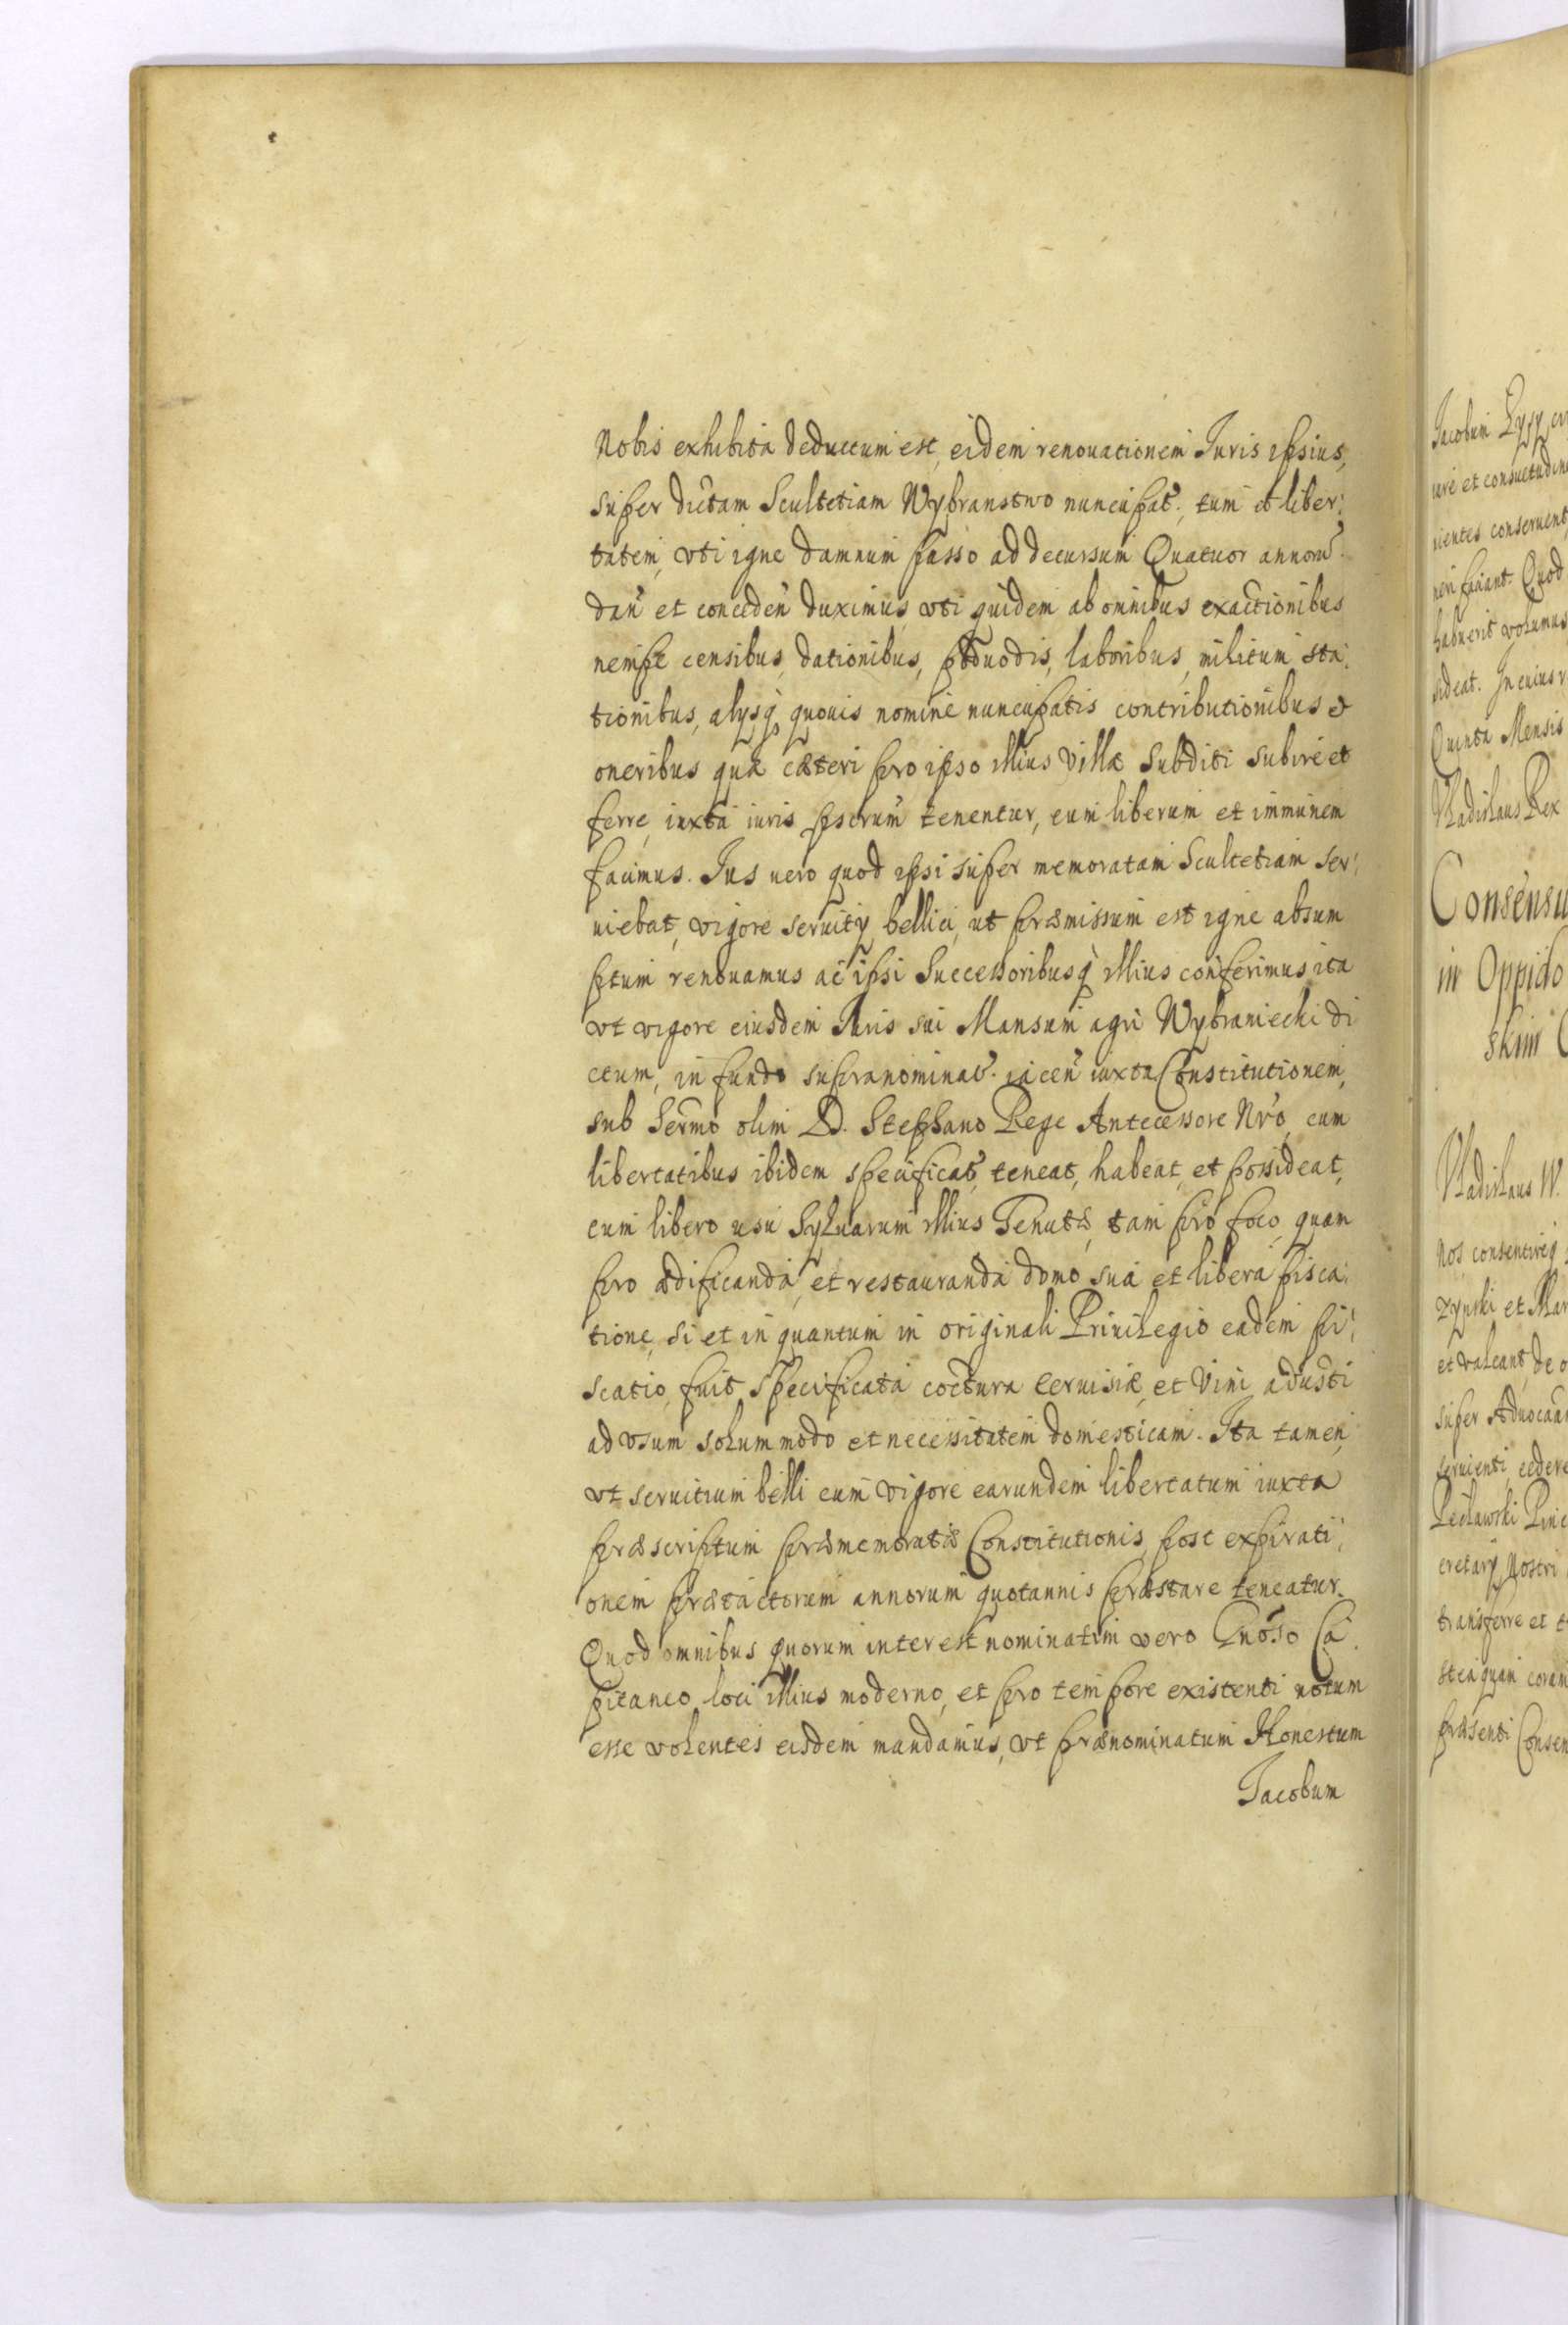 Nobis exhibita deductum est, eidem renouationem Juris ipsius,
super dictam Scultetiam Wybranstwo nuncupat:, tum et liber:
tatem, vti igne damnum passo ad decursum Quatuor annorũ
dañ et conceden̄ duximus, vti quidem ab omnibus exactionibus
nempe censibus, dationibus, podwodis, laboribus, militum sta:
tionibus, alysq̨ quouis nomine nuncupatis contributionibus &
oneribus quæ cæteri pro ipso illius Villæ Subditi subire et
ferre, iuxta iuris pscrum̄ tenentur, eum liberum et immunem
facimus. Jus uero quod ipsi super memoratam Scultetiam ser:
uiebat, vigore seruity bellici, ut præmissum est igne absum
ptum renouamus ac ipsi Successoribusq̨ illius conferimus ita
vt vigore eiusdem Juris sui Mansum agri Wybraniecki di
ctum, in fundo supranominat. iacen̄ iuxta Constitutionem,
sub Sermo olim D. Stephano Rege Antecessore Nr̃o, cum
libertatibus ibidem specificat, teneat, habeat, et possideat,
cum libero usu Syluarum illius Tenutæ, tam pro foco, quam
pro ædificanda, et restauranda domo sua et libera pisca:
tione, si et in quantum in originali Priuilegio eadem pi:
scatio, fuit specificata coctura ceruisiæ, et Vini adusti
ad vsum solummodo et necessitatem domesticam. Ita tamen
vt seruitium belli cum vigore earundem libertatum iuxta
præscriptum præmemoratæ Constitutionis, post expirati:
onem prætactorum annorum quotannis præstare teneatur.
Quod omnibus quorum interest nominatim vero Gnõso Ca:
pitaneo loci illius moderno, et pro tempore existenti notum
esse volentes eisdem mandamus, vt prænominatum Honestum
Jacobum
Jacobum Lysy
iure et consuetudine
uientes conseruent
neri faciant. Quod
habuerit volumus
sideat. In cuius r
Quinta Mensis
Vladislaus Rex
Consensu
in Oppido
skim
Vladislaus IV.
Nos consentireq
et Mar
et valeant, de
super Aduocatia
seruienti, cedere
cretary Nostri
transferre et t
quam coram
præsenti Consen